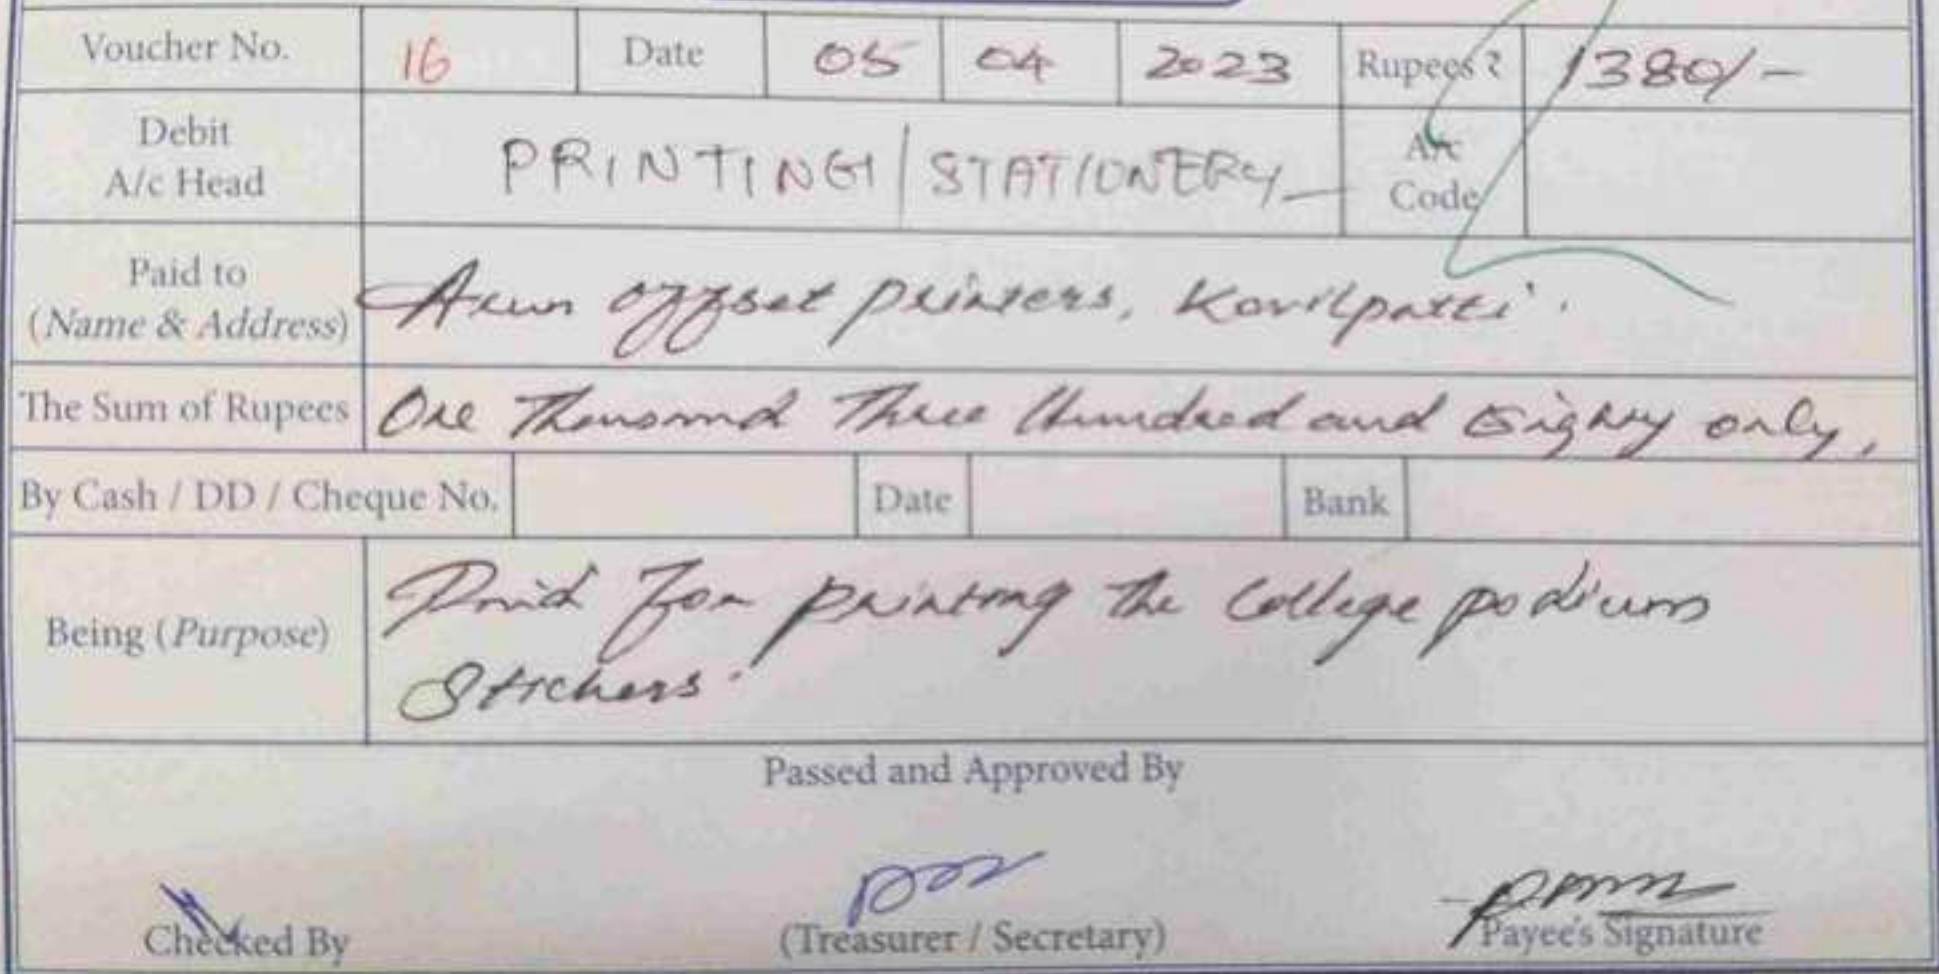 Voucher No. 16 Date 05 04 2023 Rupees ₹ 1380/-
Debit A/c Head PRINTING / STATIONERY A/c Code
Paid to (Name & Address) Arun offset printers, Kovilpatti.
The Sum of Rupees One Thousand Three Hundred and Eighty only,
By Cash / DD / Cheque No. Date Bank
Being (Purpose) Paid for printing the College podium
Stickers.
Passed and Approved By
Checked By (Treasurer / Secretary) Payee's Signature